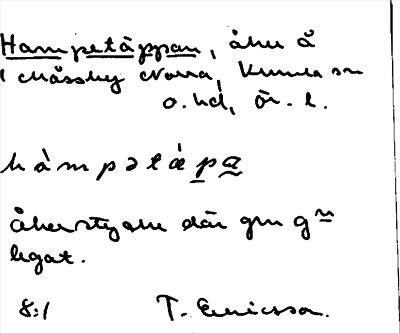 Hampetäppan, åker å
i Mossby Norra, Kumla sn
o. hd, Ör. l.
hàmpətǽpa
åkerstycke där gm gn
legat.
8:1 T. Ericsson.